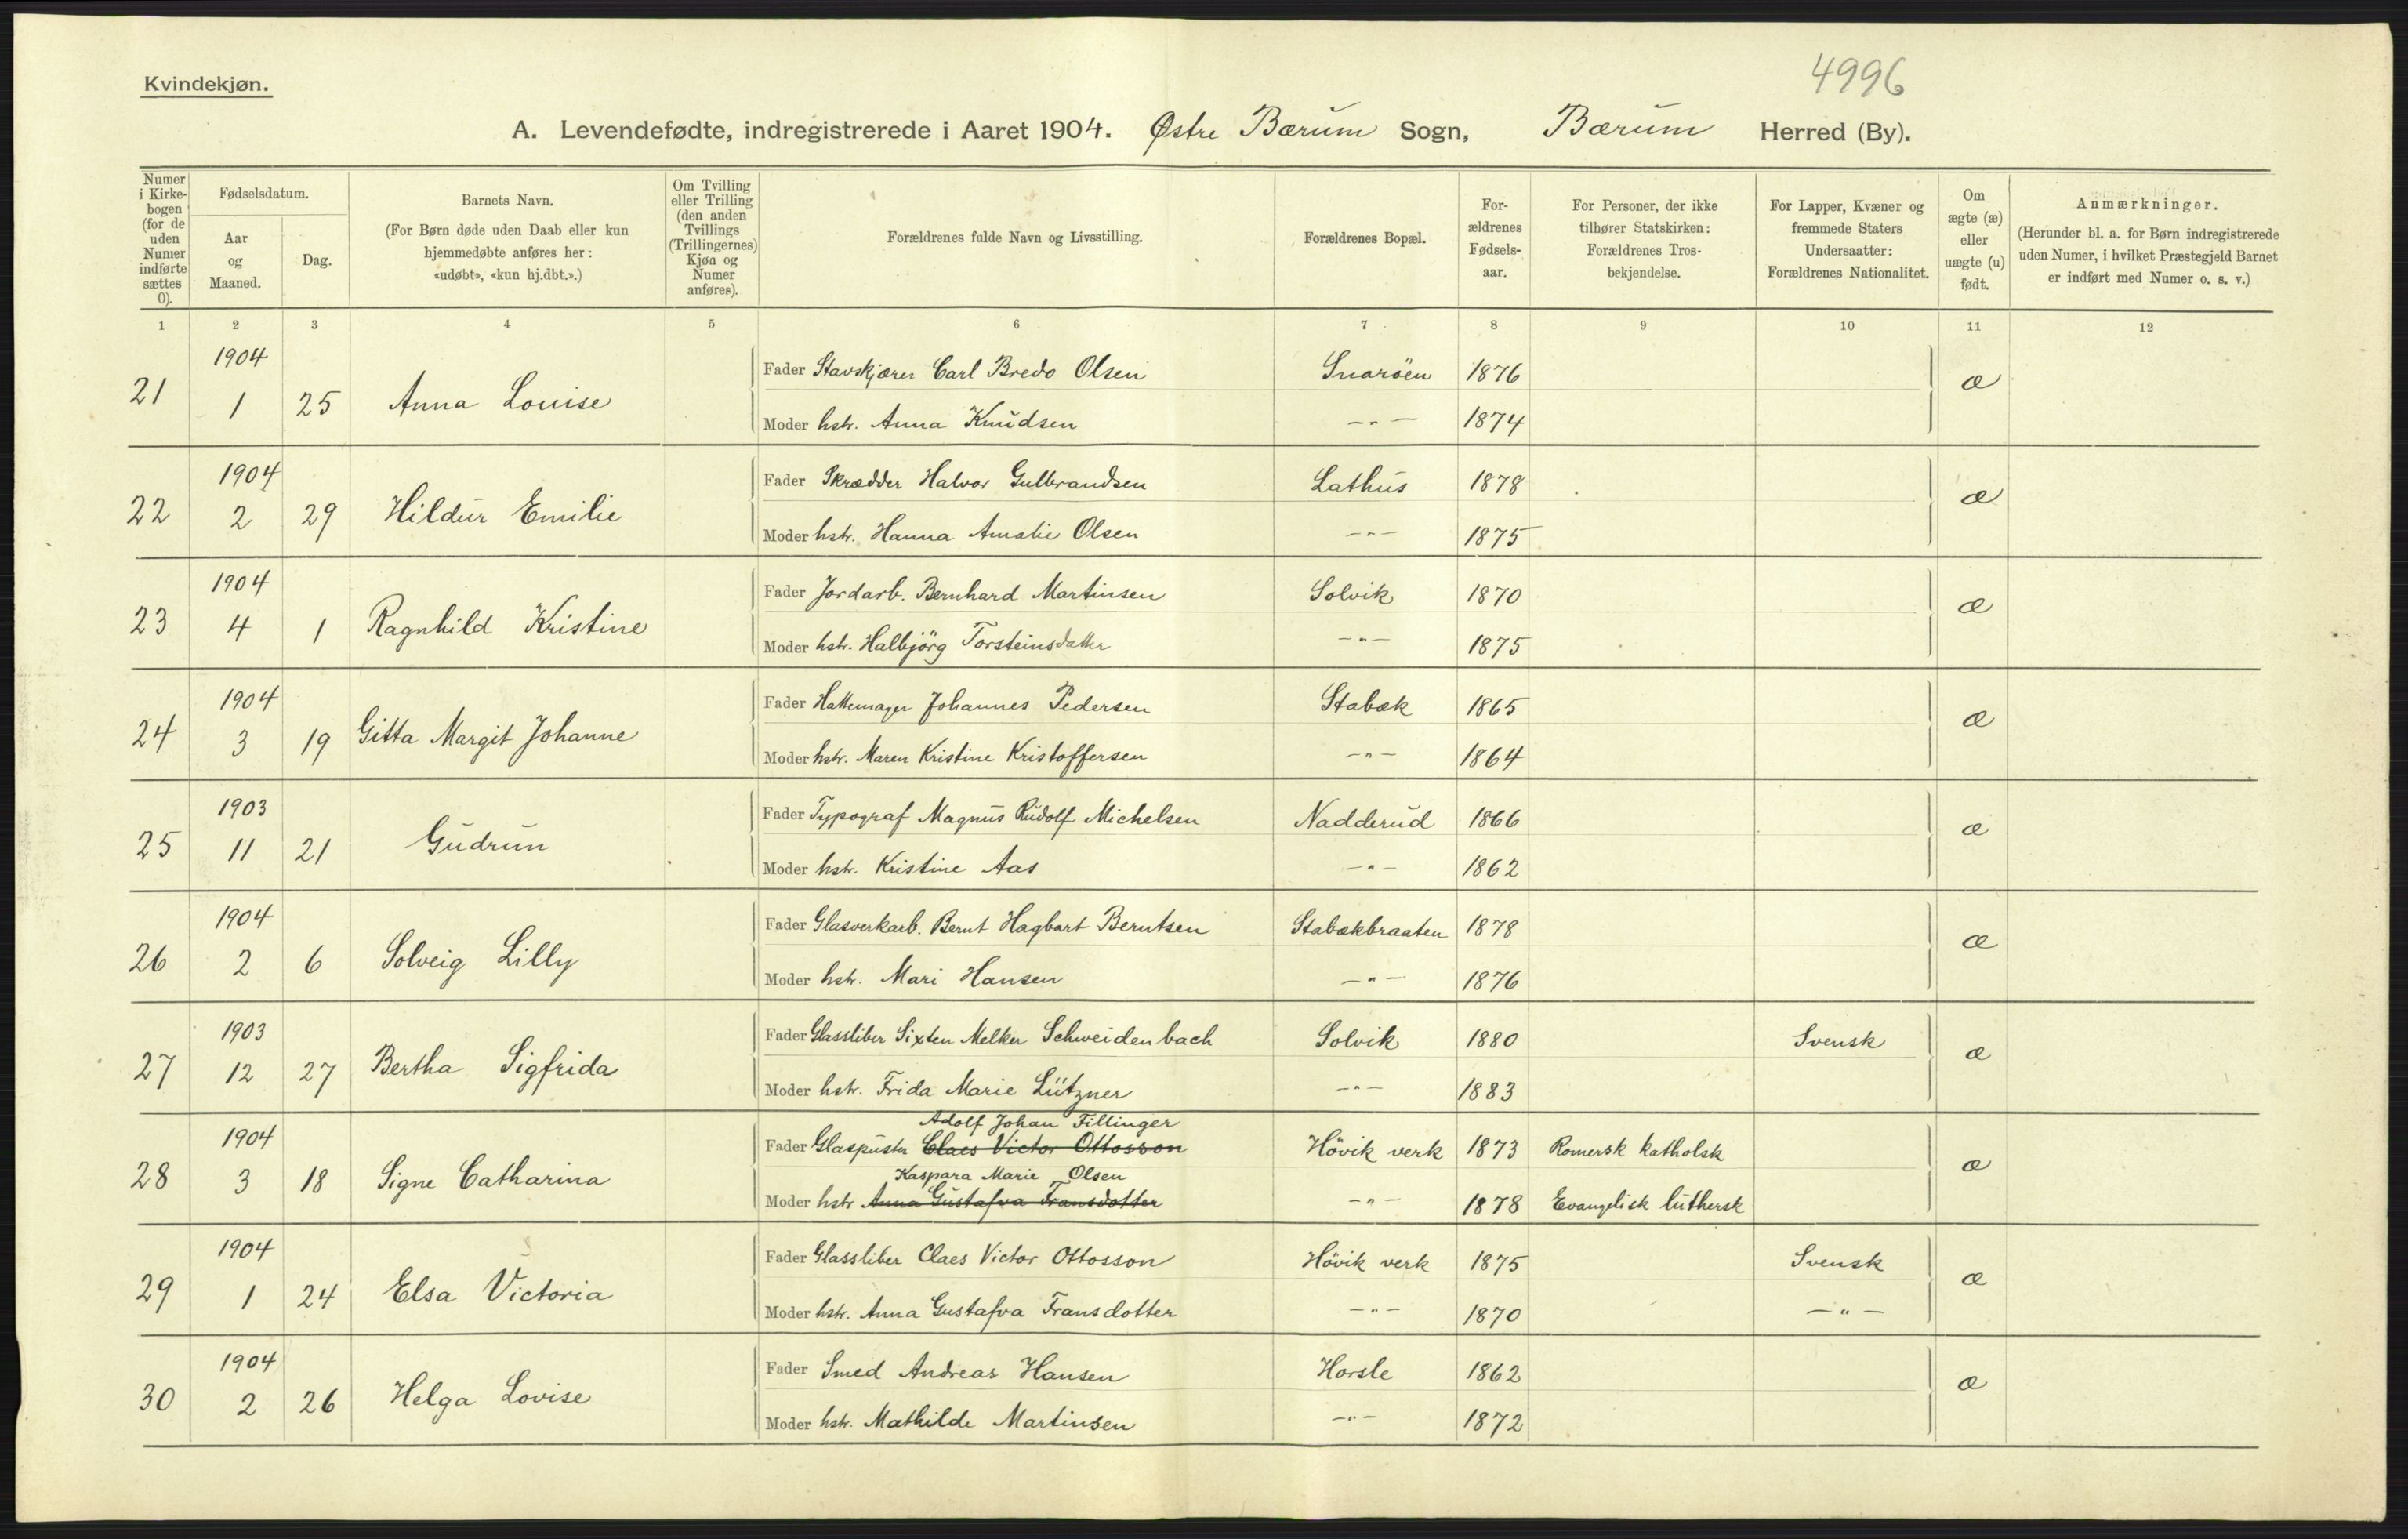 4996
Kvindekjøn.
A. Levendefødte, indregistrerede i Aaret 1904. Østre Bærum Sogn, Bærum Herred (By).
Numer i Kirkebogen (for de uden Numer indførte sættes 0).
Fødselsdatum.
Aar og Maaned.
Dag.
Barnets Navn.
(For Børn døde uden Daab eller kun hjemmedøbte anføres her: «udøbt», «kun hj.dbt.».)
Om Tvilling eller Trilling (den anden Tvillings (Trillingernes) Kjøn og Numer anføres).
Forældrenes fulde Navn og Livsstilling.
Forældrenes Bopæl.
Forældrenes Fødselsaar.
For Personer, der ikke tilhører Statskirken: Forældrenes Trosbekjendelse.
For Lapper, Kvæner og fremmede Staters Undersaatter: Forældrenes Nationalitet.
Om ægte (æ) eller uægte (u) født.
Anmærkninger.
(Herunder bl. a. for Børn indregistrerede uden Numer, i hvilket Præstegjeld Barnet er indført med Numer o. s. v.)
1 2 3 4 5 6 7 8 9 10 11 12
1904
21 1 25 Anna Louise Fader Stavskjærer Carl Bredo Olsen Snaröen 1876 æ
Moder hstr. Anna Knudsen -"- 1874
1904
22 2 29 Hildur Emilie Fader Skrædder Halvor Gulbrandsen Lathus 1878 æ
Moder hstr. Hanna Amalie Olsen -"- 1875
1904
23 4 1 Ragnhild Kristine Fader Jordarb. Bernhard Martinsen Solvik 1870 æ
Moder hstr. Halbjörg Torsteinsdatter -"- 1875
1904
24 3 19 Gitta Margit Johanne Fader Hattemager Johannes Pedersen Stabæk 1865 æ
Moder hstr. Maren Kristine Kristoffersen -"- 1864
1903
25 11 21 Gudrun Fader Typograf Magnus Rudolf Michelsen Nadderud 1866 æ
Moder hstr. Kristine Aas -"- 1862
1904
26 2 6 Solveig Lilly Fader Glasverkarb. Bernt Hagbart Berntsen Stabækbraaten 1878 æ
Moder hstr. Mari Hansen -"- 1876
1903
27 12 27 Bertha Sigfrida Fader Glassliber Sixten Melker Schweidenbach Solvik 1880 Svensk æ
Moder hstr. Frida Marie Lützner -"- 1883
Adolf Johan Fillinger
1904
28 3 18 Signe Catharina Fader Glaspuster Claes Victor Ottosson Hövik verk 1873 Romersk katholsk æ
Kaspara Marie Olsen
Moder hstr Anna Gustafva Fransdotter -"- 1878 Evangelisk luthersk
1904
29 1 24 Elsa Victoria Fader Glassliber Claes Victor Ottosson Hövik verk 1875 Svensk æ
Moder hstr. Anna Gustafva Fransdotter -"- 1870 -"-
1904
30 2 26 Helga Lovise Fader Smed Andreas Hansen Horsle 1862 æ
Moder hstr. Mathilde Martinsen -"- 1872